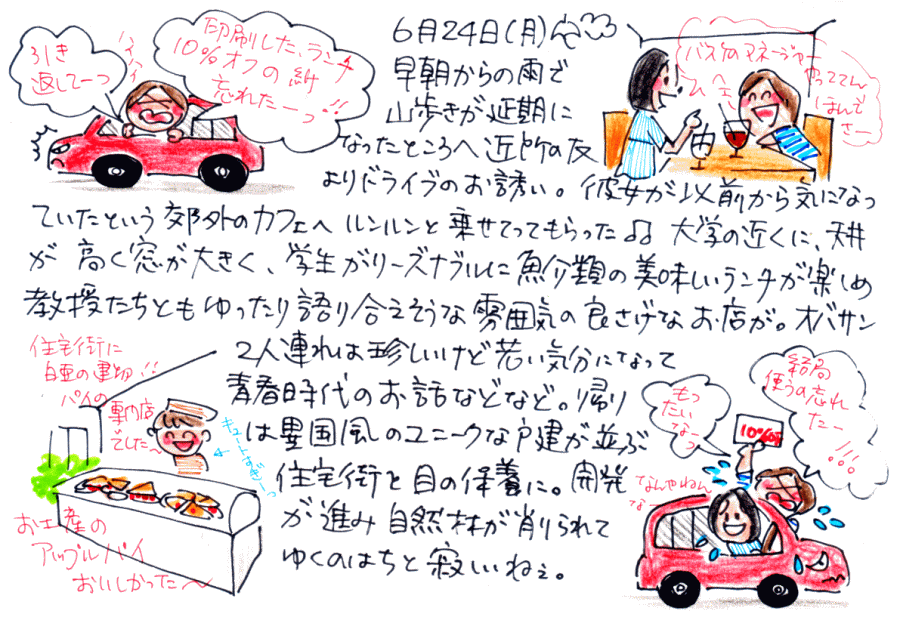 引き
返してーっ
ワイワイ
印刷した、ランチ
10%オフの
忘れたー
っ!!
6月24日(月)
早朝からの雨で
山歩きが延期に
なったところへ近所の友
よりドライブのお誘い。彼女が以前から気になっ
ていたという郊外のカフェへルンルンと乗せてってもらった♫ 大学の近くに、天井
が高く窓が大きく、学生がリーズナブルに魚介類の美味しいランチが楽しめ
教授たちともゆったり語り合えそうな雰囲気の良さげなお店が。オバサン
2人連れは珍しいけど若い気分になって
青春時代のお話などなど。帰り
は異国風のユニークな戸建が並ぶ
住宅街と目の保養に。開発
が進み自然林が削られて
ゆくのはちと寂しいねぇ。
バスケのマネージャー
やっててん
ほんでさー
へえー
住宅街に
パイの
専門店
でしたー
キュートすぎーっ
お土産の
アップルパイ
おいしかったー
もっ
たい
なーっ
10%OFF
結局
使うの忘れ
たー
!!!
なんやねん
な